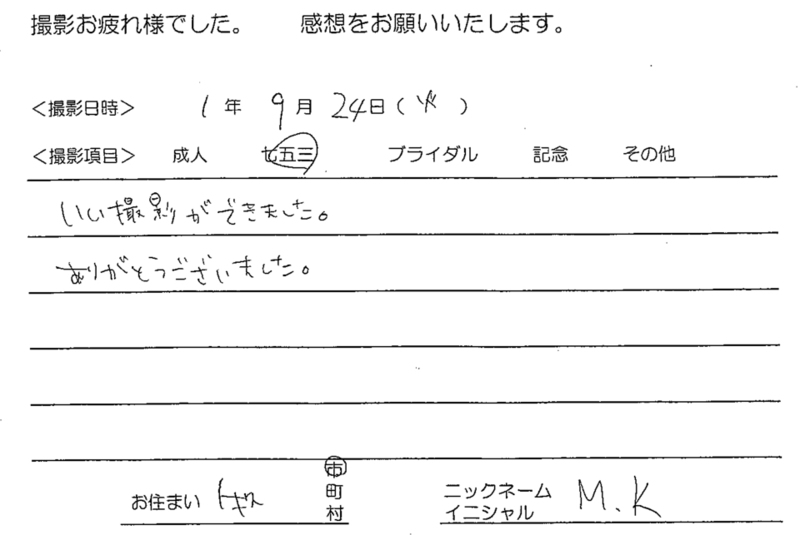 撮影お疲れ様でした。 感想をお願いいたします。
<撮影日時> 1年 9月 24日(火)
<撮影項目> 成人 七五三 ブライダル 記念 その他
いい撮影ができました。
ありがとうございました。
お住まい 市
町
村
ニックネーム M.K
イニシャル